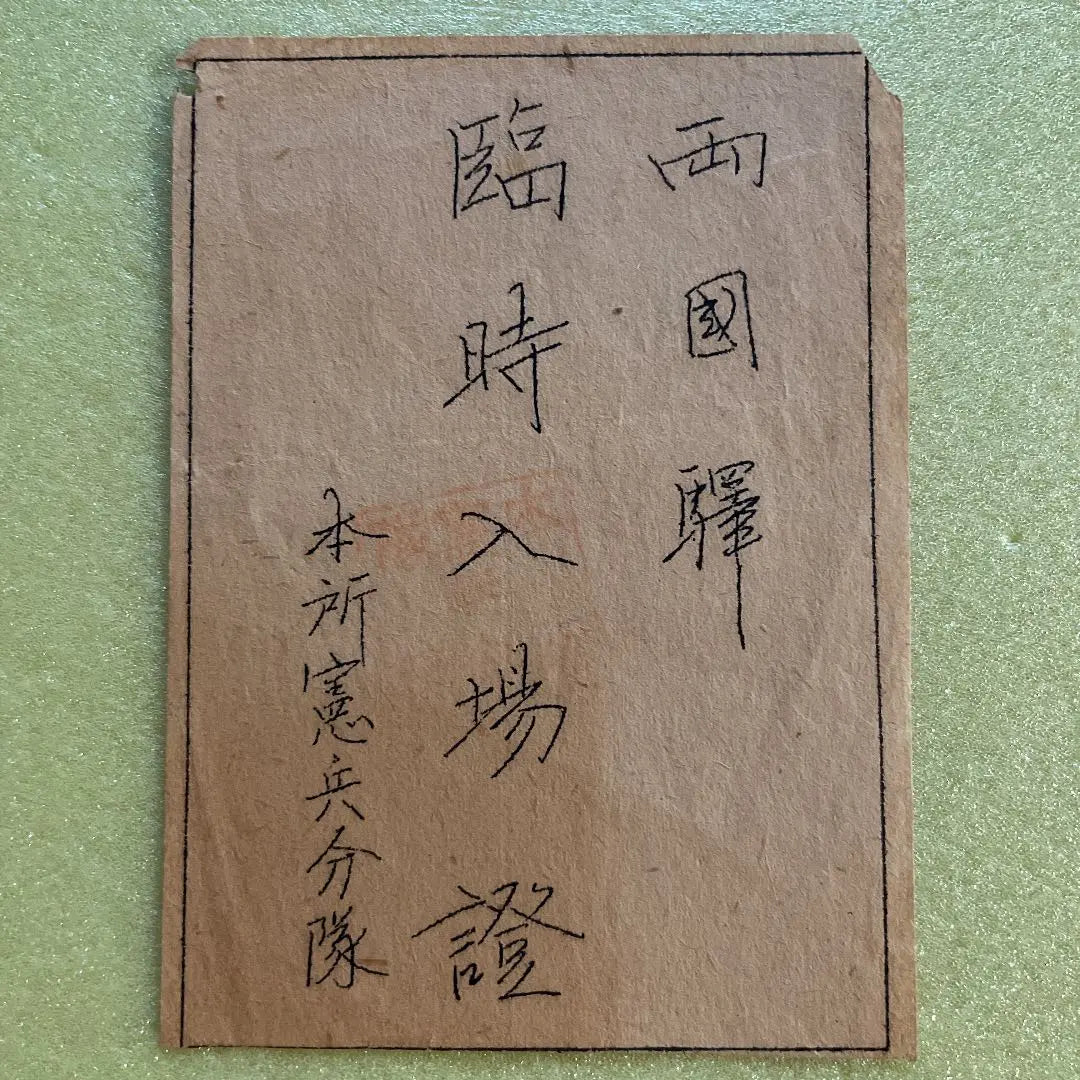 両國驛
臨時入場證
本所憲兵分隊